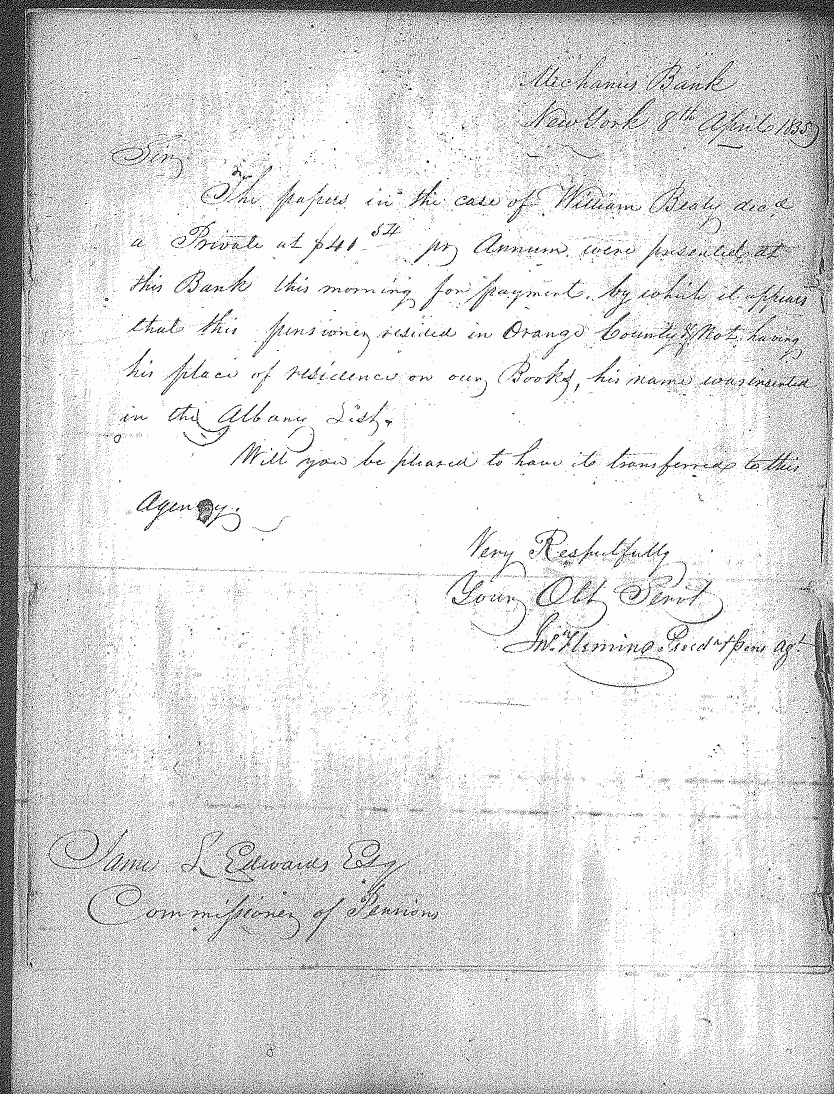 Mechanics Bank
New York 8th April 1835
Sir,
The papers in the case of William Bealy decd
a Private at $41 54 pr Annum were presented at
this Bank this morning for payment, by which it appears
that this pensioner resided in Orange County & Not having
his place of residence on our Books, his name was inserted
in the Albany List.
Will you be pleased to have it transferred to this
Agency.
Very Respectfully
Your Obt Servt
Jno. Fleming Presdt & Pens Agt.
James L Edwards Esq
Commissioner of Pensions